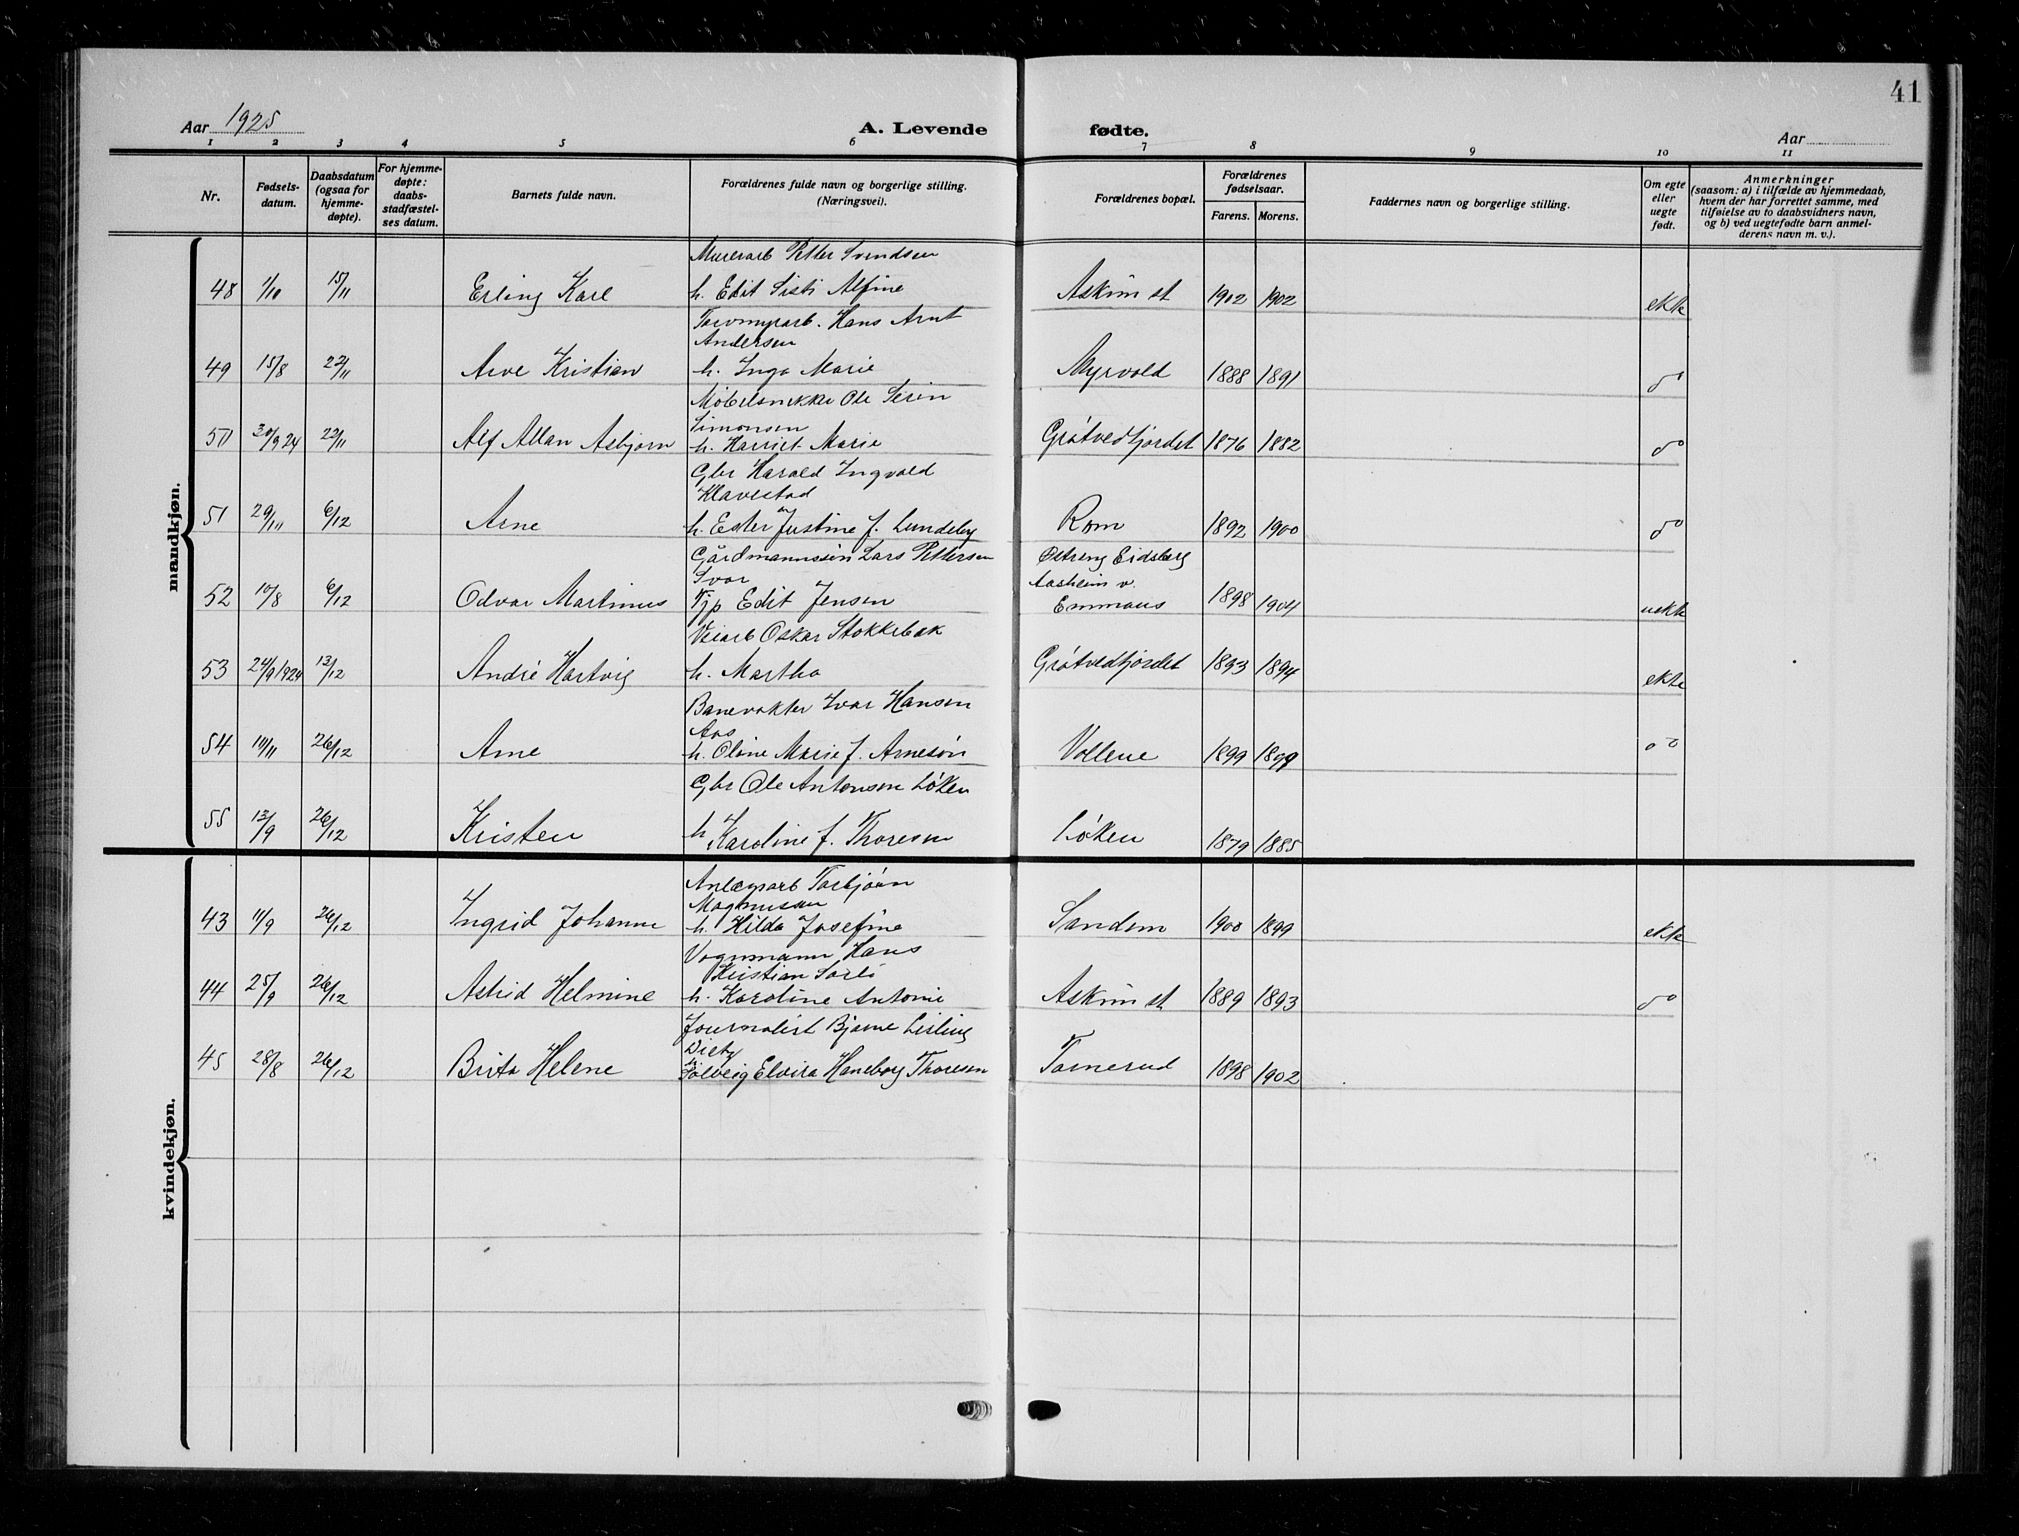 41
Aar 1925
A. Levende fødte.
Aar
1 2 3 4 5 6 7 8 9 10 11
Nr.
Fødsels-
datum.
Daabsdatum
(ogsaa for
hjemme-
døpte).
For hjemme-
døpte:
daabs-
stadfæstel-
ses datum.
Barnets fulde navn.
Forældrenes fulde navn og borgerlige stilling.
(Næringsvei).
Forældrenes bopæl.
Forældrenes
fødselsaar.
Farens. Morens.
Faddernes navn og borgerlige stilling.
Om egte
eller
uegte
født.
Anmerkninger
(saasom: a) i tilfælde av hjemmedaab,
hvem der har forrettet samme, med
tilføielse av to daabsvidners navn,
og b) ved uegtefødte barn anmel-
derens navn m. v.).
mandkjøn.
Murerarb Petter Svendsen
48 1/10 15/11 Erling Karl h. Edit Sisti Alfine Askim st 1902 1902 ekte
Torvmyrarb. Hans Arnt
Andersen
49 15/8 22/11 Arve Kristian h. Inga Marie Myrvold 1888 1891 do
Møbelsnekker Ole Serin
Simonsen
50 30/9 24 22/11 Alf Allan Asbjørn h. Harriet Marie Grøtvedtjordet 1876 1882 do
Gbr Harald Ingvald
Klavestad
51 29/11 6/12 Arne h. Ester Justine f. Lundeby Rom 1892 1900 do
Gårdmannssøn Lars Pettersen
Svar
Østreng Eidsberg
Aasheim v
52 10/8 6/12 Odvar Martinus Tjp Edit Jensen Emmaus 1898 1904 uekte
Veiarb Oskar Stokkebak
53 24/9 1924 13/12 André Hartvig h. Martha Grøtvedtjordet 1893 1894 ekte
Banevokter Ivar Hansen
Aas
54 10/11 26/12 Arne h. Oline Marie f. Arnesøn Vollene 1899 1899 do
Gbr Ole Antonsen Løken
55 13/9 26/12 Kristen h. Karoline f. Thoresen Løken 1879 1885
kvindekjøn.
Anlegsarb Torbjørn
Magnussen
43 11/9 26/12 Ingrid Johanne h. Hilda Josefine Sandem 1900 1899 ekte
Vognmann Hans
Kristian Sorli
44 25/9 26/12 Astrid Helmine h. Karoline Antonie Askim st 1889 1893 do
Journalist Bjarne Lisling
Diety
45 28/8 26/12 Brita Helene h. Solveig Elvira Haneborg Thoresen Tornerud 1898 1902